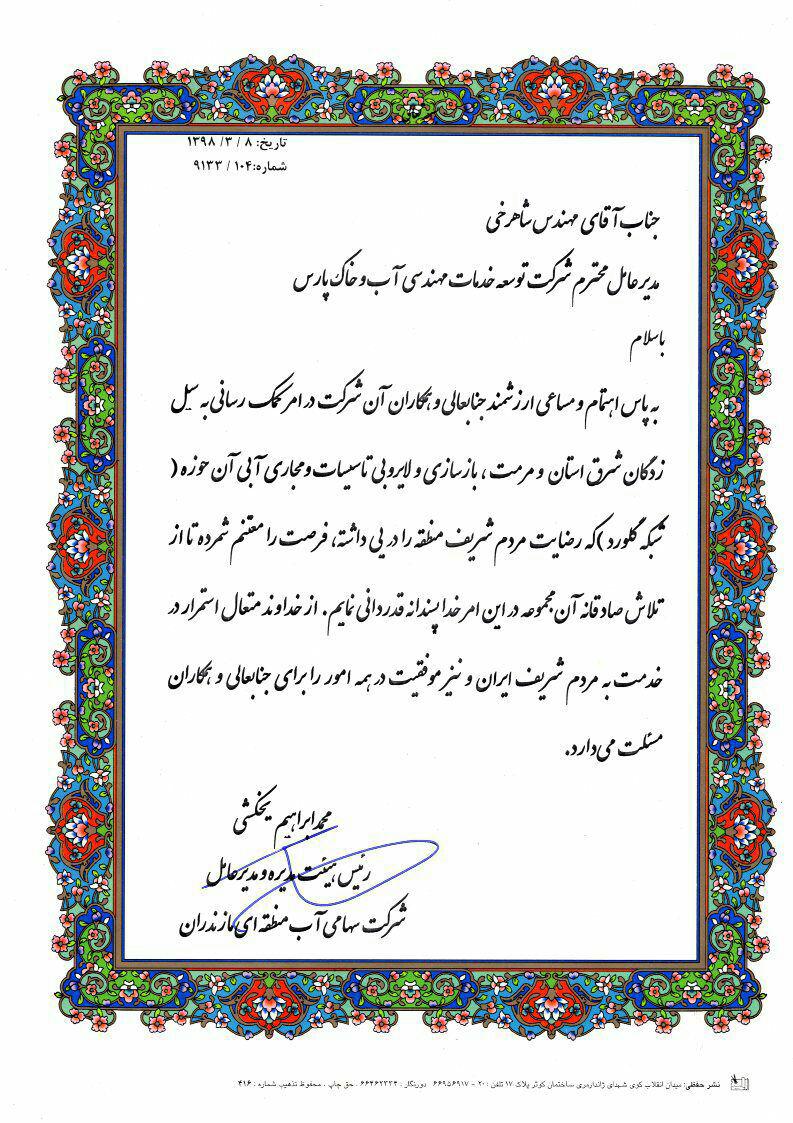 تاریخ: ۸ / ۳/ ۱۳۹۸
شماره:۱۰۴ / ۹۱۳۳
جناب آقای مهندس شاهرخی
مدیر عامل محترم شرکت توسعه خدمات مهندسی آب و خاک پارس
باسلام
به پاس اهتمام و مساعی ارزشمند جنابعالی و همکاران آن شرکت در امر کمک رسانی به سیل
زدگان شرق استان و مرمت ، بازسازی و لایروبی تاسیسات و مجاری آبی آن حوزه (
شبکه گلورد )که رضایت مردم شریف منطقه را در پی داشته، فرصت را مغتنم شمرده تا از
تلاش صادقانه آن مجموعه در این امر خداپسندانه قدردانی نمایم. از خداوند متعال استمرار در
خدمت به مردم شریف ایران و نیز موفقیت در همه امور را برای جنابعالی و همکاران
مسئلت می‌دارد.
محمد ابراهیم یخکشی
رئیس هیئت مدیره و مدیرعامل
شرکت سهامی آب منطقه ای مازندران
نشر حفظی: میدان انقلاب کوی شهدای ژاندارمری ساختمان کوثر پلاک ۱۷ تلفن : ۲۰ - ۶۶۹۵۶۹۱۷ دورنگار : ۶۶۴۶۲۳۳۴ . حق چاپ . محفوظ تذهیب شماره : ۴۱۶